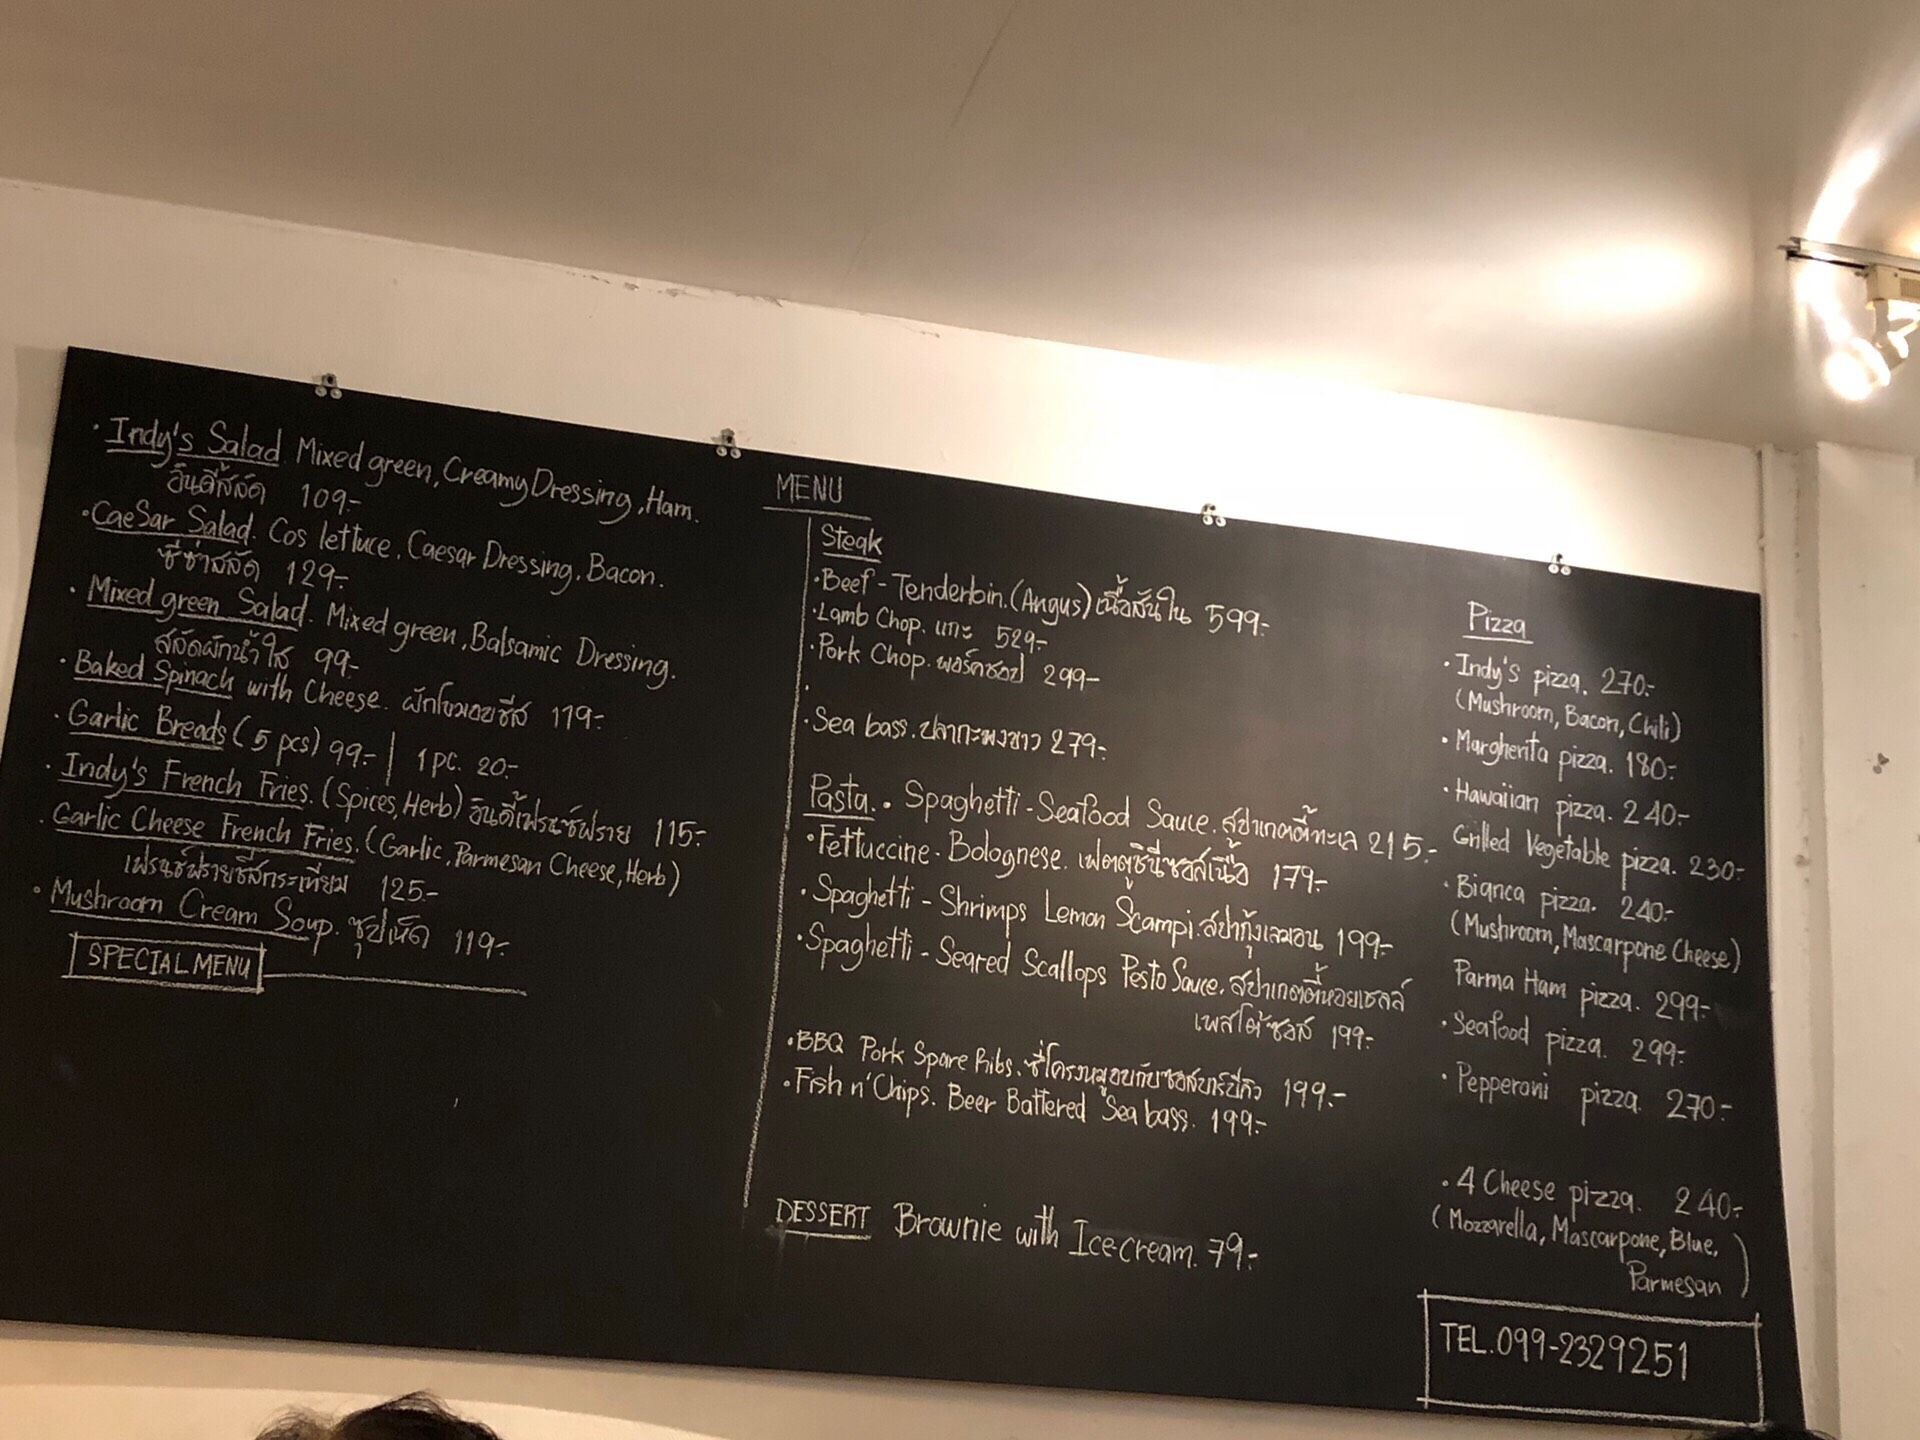 • Indy's Salad. Mixed green, Creamy Dressing, Ham.
อินดี้สลัด 109.-
• CaeSar Salad. Cos lettuce, Caesar Dressing, Bacon.
ซีซ่าสลัด 129.-
• Mixed green Salad. Mixed green, Balsamic Dressing.
สลัดผักน้ำใส 99.-
• Baked Spinach with Cheese. ผักโขมอบชีส 119.-
• Garlic Breads (5 pcs) 99.- | 1 pc. 20.-
• Indy's French Fries. (Spices, Herb) อินดี้เฟรนช์ฟราย 115.-
• Garlic Cheese French Fries. (Garlic, Parmesan Cheese, Herb)
เฟรนช์ฟรายชีสกระเทียม 125.-
• Mushroom Cream Soup. ซุปเห็ด 119.-
SPECIAL MENU
MENU
Steak
• Beef - Tenderloin. (Angus) เนื้อสันใน 599.-
• Lamb Chop. แกะ 529.-
• Pork Chop. พอร์คชอป 299.-
•
• Sea bass. ปลากะพงขาว 279.-
Pasta. • Spaghetti - Seafood Sauce. สปาเกตตี้ทะเล 215.-
• Fettuccine - Bolognese. เฟตตูชินีซอสเนื้อ 179.-
• Spaghetti - Shrimps Lemon Scampi. สปากุ้งเลมอน 199.-
• Spaghetti - Seared Scallops Pesto Sauce. สปาเกตตี้หอยเชลล์
เพสโต้ซอส 199.-
• BBQ Pork Spare Ribs. ซี่โครงหมูอบกับซอสบาร์บีคิว 199.-
• Fish n' Chips. Beer Battered Sea bass. 199.-
DESSERT Brownie with Ice-cream. 79.-
Pizza
• Indy's pizza. 270.-
(Mushroom, Bacon, Chili)
• Margherita pizza. 180.-
• Hawaiian pizza. 240.-
Grilled Vegetable pizza. 230.-
• Bianca pizza. 240.-
(Mushroom, Mascarpone Cheese)
Parma Ham pizza. 299.-
• Seafood pizza. 299.-
• Pepperoni pizza. 270.-
• 4 Cheese pizza. 240.-
(Mozzarella, Mascarpone, Blue,
Parmesan)
TEL. 099-2329251